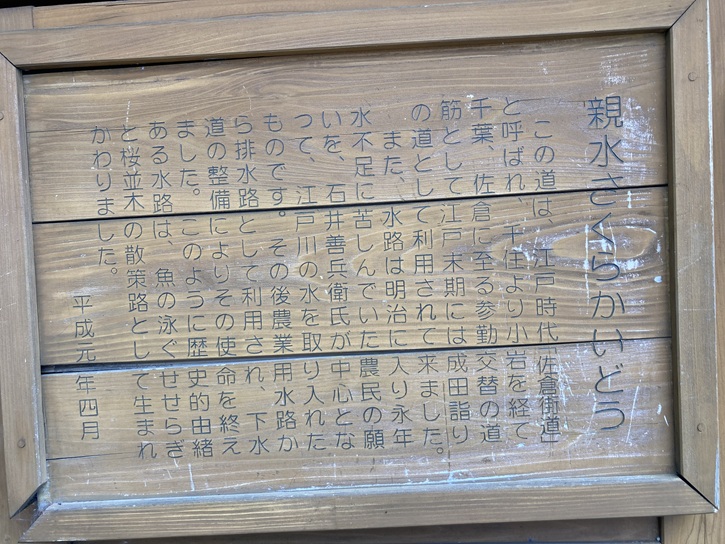 親水さくらかいどう
この道は、江戸時代「佐倉街道」
と呼ばれ、千住より小岩を経て
千葉、佐倉に至る参勤交替の道
筋として江戸末期には成田詣り
の道として利用されて来ました。
また、水路は明治に入り永年
水不足に苦しんでいた農民の願
いを、石井善兵衛氏が中心とな
って、江戸川の水を取り入れた
ものです。その後農業用水路か
ら排水路として利用され、下水
道の整備によりその使命を終え
ました。このように歴史的由緒
ある水路は、魚の泳ぐせせらぎ
と桜並木の散策路として生まれ
かわりました。
平成元年四月